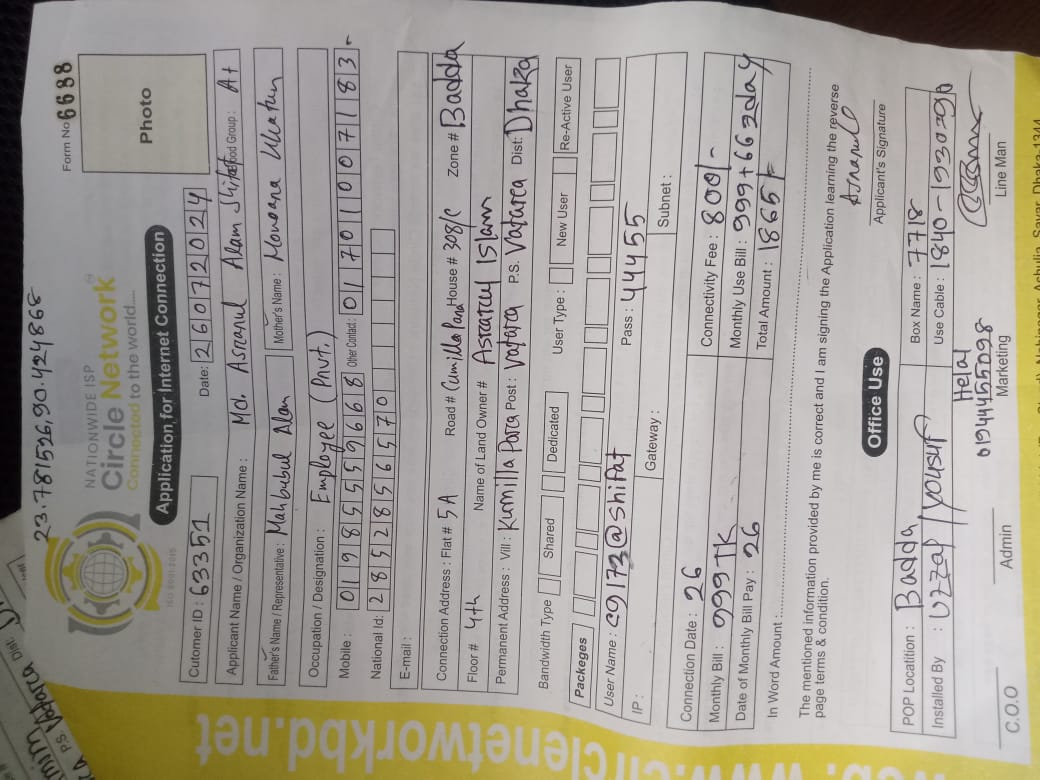 23.781526,90.424868
Form No 6688
NATIONWIDE ISP
Circle Network
Connected to the world....
ISO 9001:2015
Photo
Application for Internet Connection
Cutomer ID : 63351
Date: 26072024
Applicant Name / Organization Name : Md. Asranul Alam Shifat
Blood Group : A+
Father's Name / Representative : Mahbubul Alan
Mother's Name : Monoana Khatun
Occupation / Designation : Employee (Pnvt.)
Mobile : 01985559668
Other Contact : 01701007183
National Id: 2852856570
E-mail :
Connection Address : Flat # 5A Road # Cumilla Para House # 308/C Zone # Badda
Floor # 4th Name of Land Owner # Islam
Permanent Address : Vill : Kumilla Para Post : Vatara P.S. Vatara Dist: Dhaka
Bandwidth Type Shared Dedicated User Type : New User Re-Active User
Packeges
User Name : c9173@shifat Pass : 44455
IP : Gateway : Subnet :
Connection Date : 26 Connectivity Fee : 800/-
Monthly Bill : 999 TK Monthly Use Bill : 999+66 2day
Date of Monthly Bill Pay : 26 Total Amount : 1865/-
In Word Amount :
The mentioned information provided by me is correct and I am signing the Application learning the reverse
page terms & condition.
Applicant's Signature
Office Use
POP Locatition : Badda Box Name : 7718
Installed By : Uzzal / yousuf Use Cable : 1840-1930
Helal
01944455098
C.O.O Admin Marketing Line Man
Web: www.circlenetworkbd.net